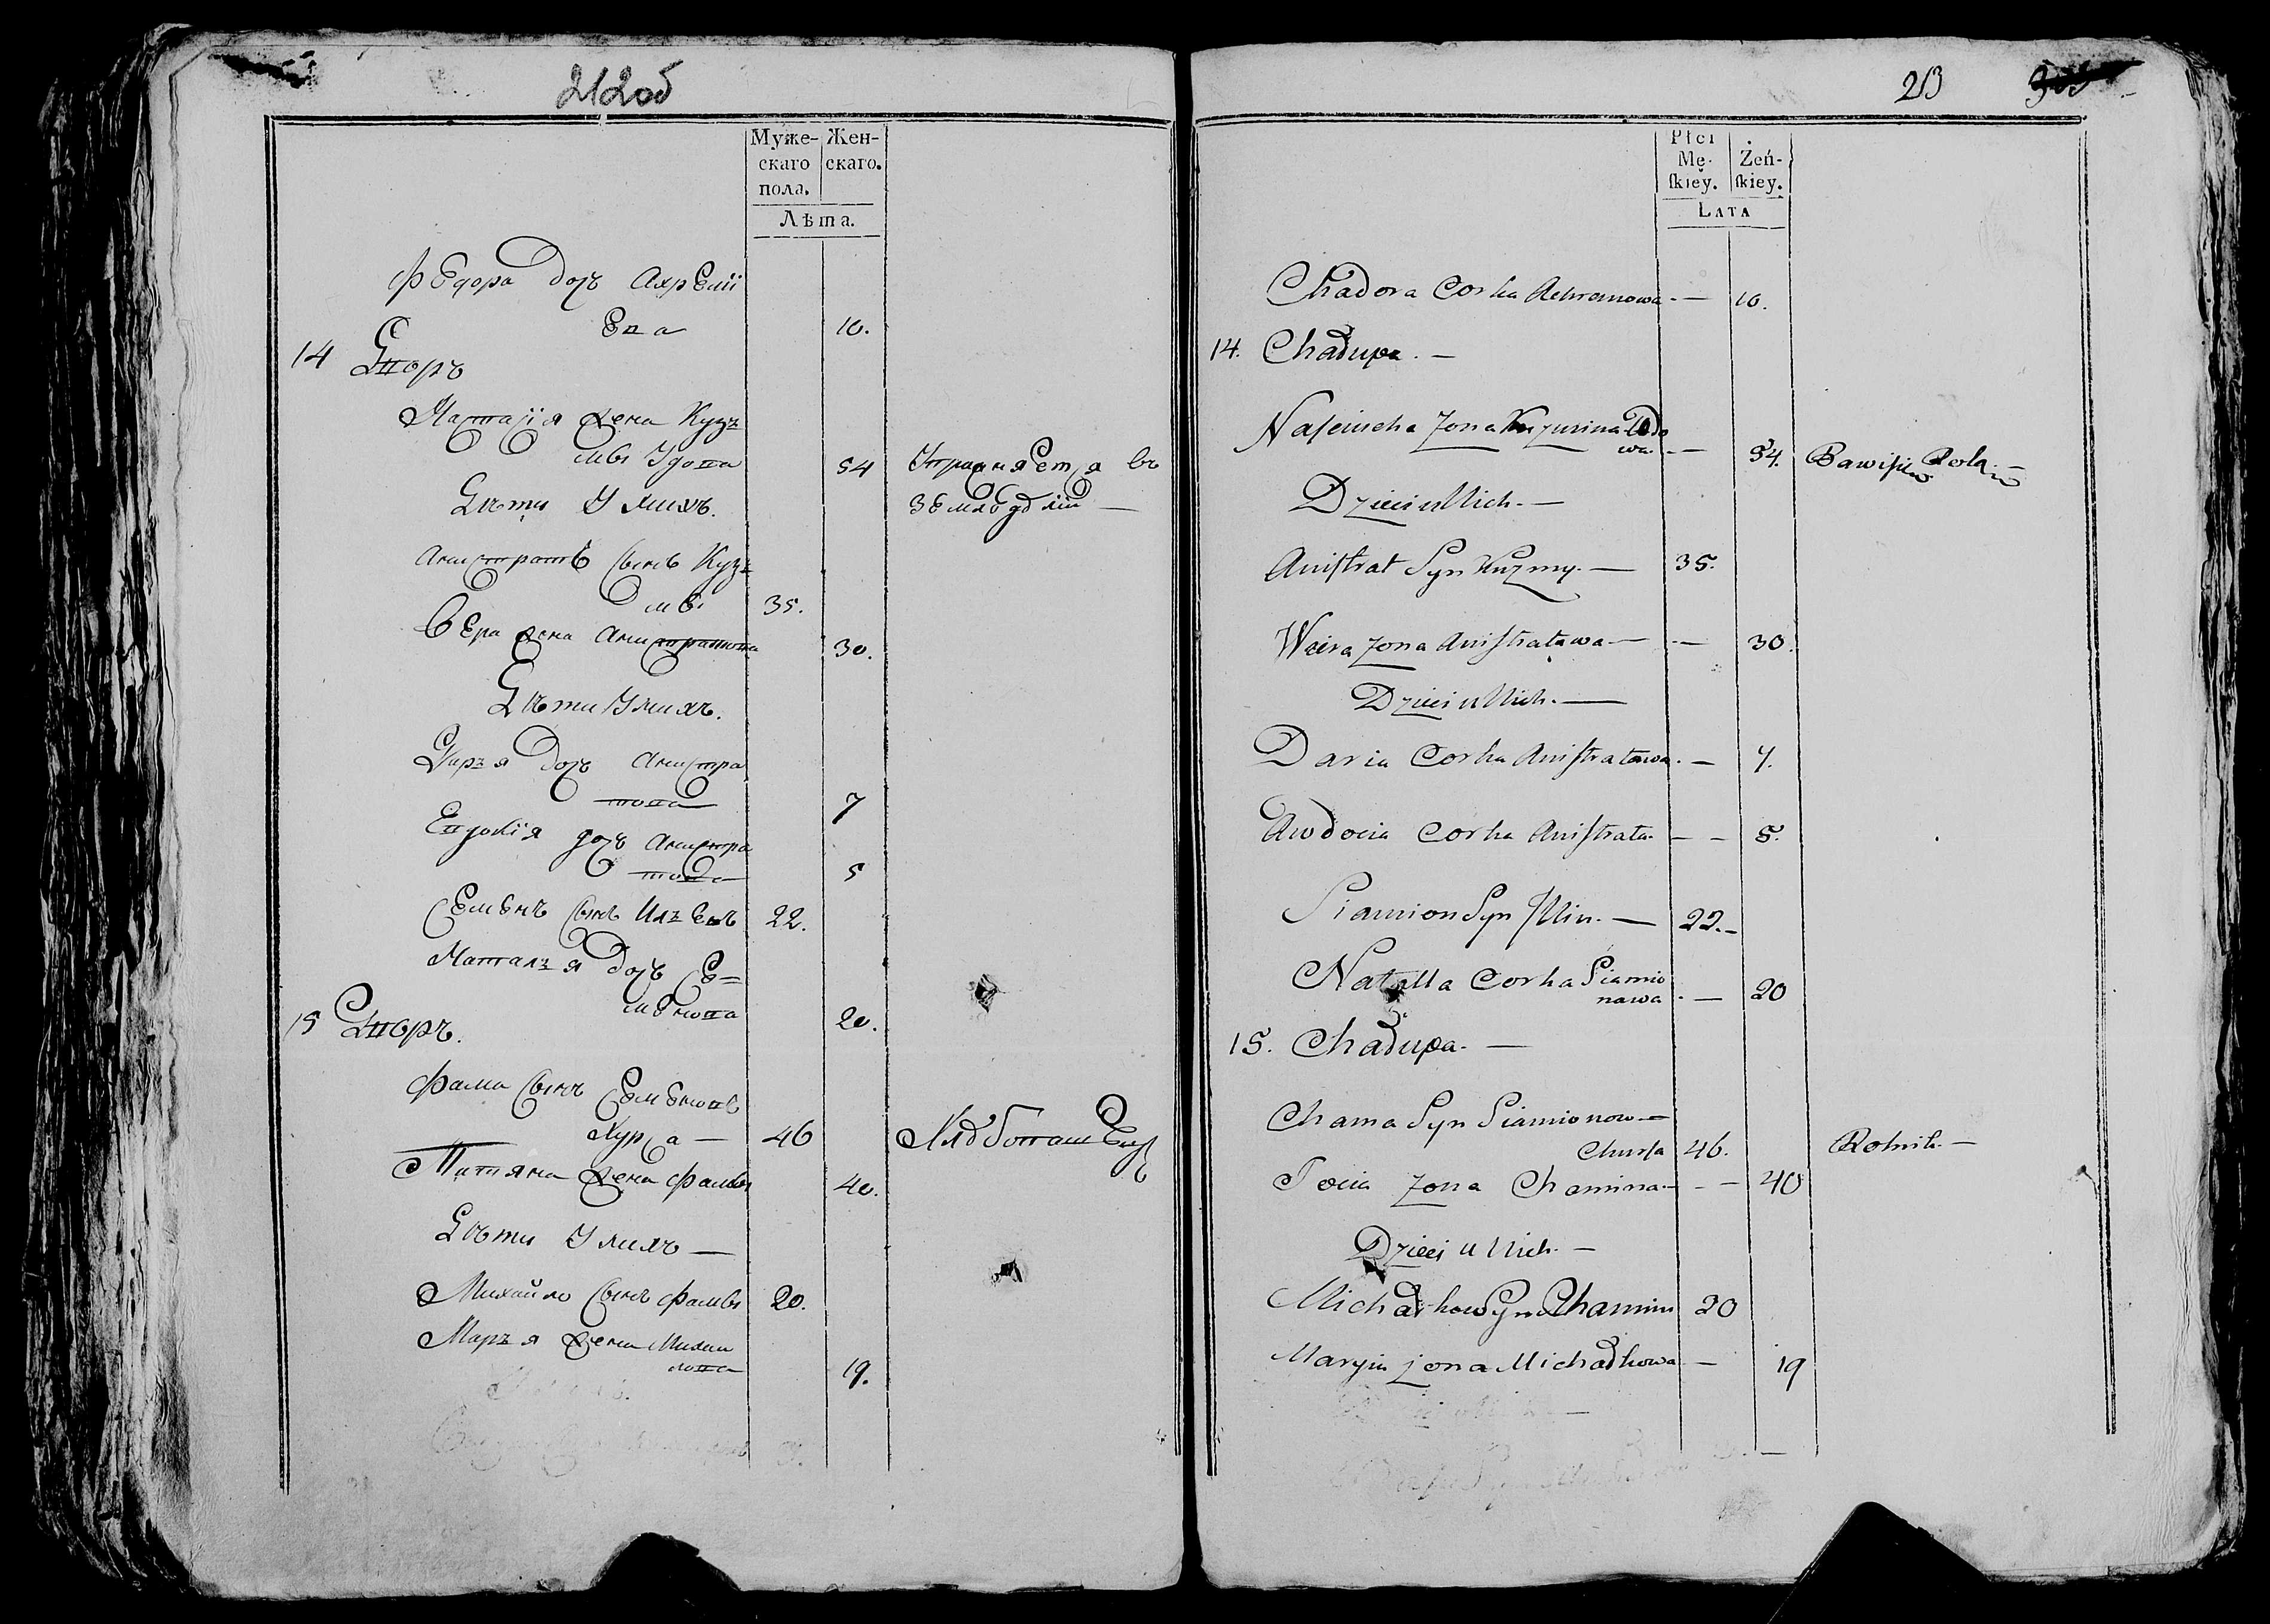 212об
Муже- Жен-
скаго скаго.
пола.
Лѣта.
Федора дочь Ахреми
ева 10.
14 Дворъ
Настасія жена Кузь
мы Удова 54 Упражняется въ
Дѣти У нихъ. земледѣліи —
Анистратъ сынъ Кузь
мы 35.
Вера жена Анистратова 30.
Дѣти У нихъ.
Дарья дочь Анистра
това 7
Евдокія дочь Анистра
това 5
Семенъ сынъ Ильевъ 22.
Наталья дочь Се=
менова 20.
15 Дворъ.
Фама сынъ Семеновъ
Хурса — 46 Хлебопашецъ
Татяна жена Фамы 40.
Дѣти У нихъ —
Михайло сынъ Фамы 20.
Марья жена Михаи
лова 19.
213
Płci
Mę- Żeń-
ſkiey. ſkiey.
LATA
Chadora Corka Achramowa — 10.
14. Chałupa. —
Naſciucha Zona Kuzmina Wdo
wa — 54. Bawiſię Rolą —
Dzieci u Nich. —
Aniſtrat Syn Kuzmy. — 35.
Wiera Zona Aniſtratawa — — 30.
Dzieci u Nich. —
Daria Corka Aniſtratawa. — 7.
Awdocia Corka Aniſtrata — — 5.
Siamion Syn Illin. — 22. —
Natalla Corka Siamio
nawa. — 20
15. Chałupa. —
Chama Syn Siamionow —
Churſa 46. Rolnik. —
Tacia Zona Chamina — — — 40
Dzieci u Nich. —
Michałkow Syn Chamin 20
Maryia Zona Michałkowa — 19